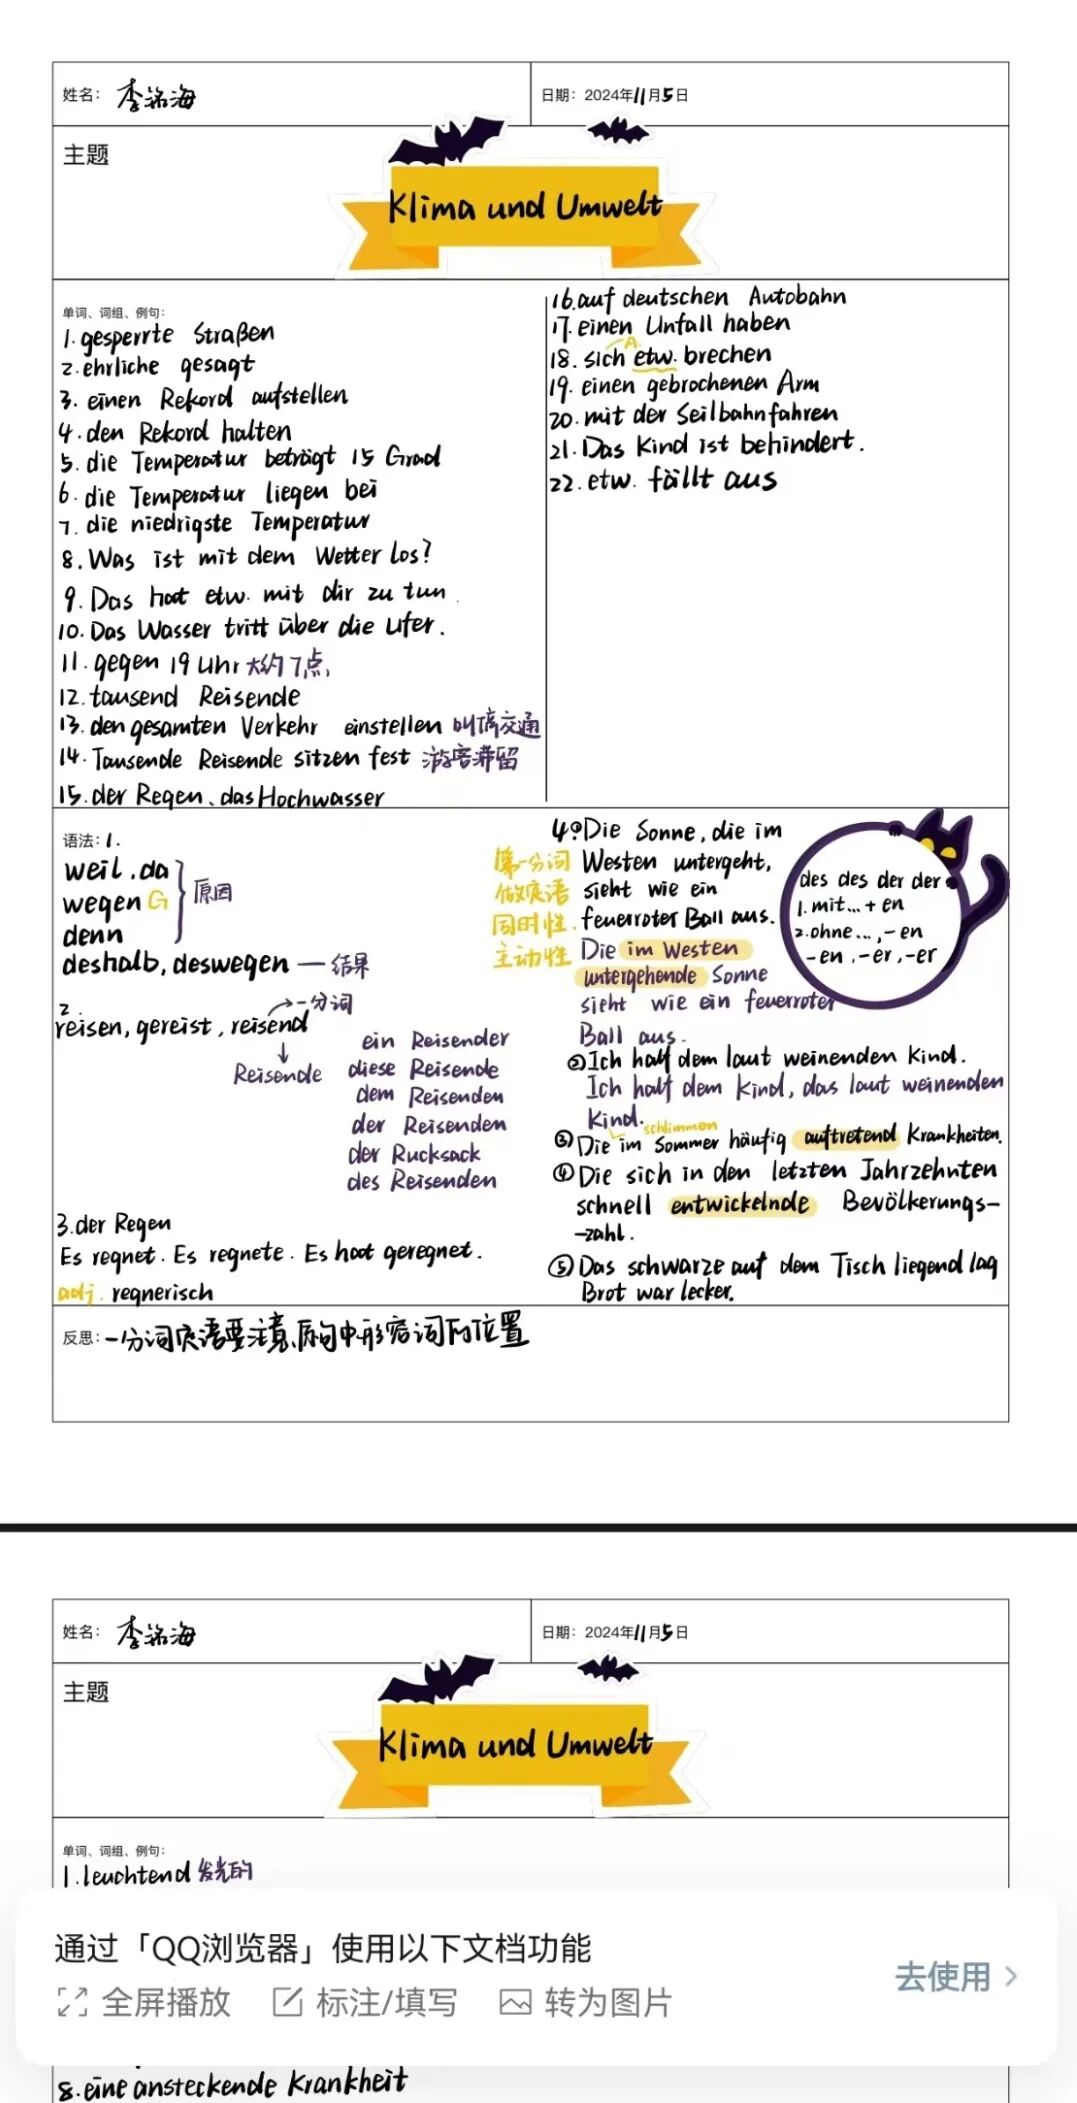 姓名: 李铭海
日期: 2024年11月5日
主题
Klima und Umwelt
单词、词组、例句:
1. gesperrte Straßen
2. ehrliche gesagt
3. einen Rekord aufstellen
4. den Rekord halten
5. die Temperatur beträgt 15 Grad
6. die Temperatur liegen bei
7. die niedrigste Temperatur
8. Was ist mit dem Wetter los?
9. Das hat etw. mit dir zu tun
10. Das Wasser tritt über die Ufer.
11. gegen 19 Uhr 大约7点
12. tausend Reisende
13. den gesamten Verkehr einstellen 叫停交通
14. Tausende Reisende sitzen fest 游客滞留
15. der Regen、das Hochwasser
16. auf deutschen Autobahn
17. einen Unfall haben
A
18. sich etw. brechen
19. einen gebrochenen Arm
20. mit der Seilbahn fahren
21. Das Kind ist behindert.
22. etw. fällt aus
语法: 1.
weil, da
wegen G
denn
原因
deshalb, deswegen — 结果
2.
一分词
reisen, gereist, reisend
Reisende
ein Reisender
diese Reisende
dem Reisenden
der Reisenden
der Rucksack
des Reisenden
3. der Regen
Es regnet. Es regnete. Es hat geregnet.
adj. regnerisch
第一分词
做定语
同时性
主动性
4. ①Die Sonne, die im
Westen untergeht,
sieht wie ein
feuerroter Ball aus.
Die im Westen
untergehende Sonne
sieht wie ein feuerroter
Ball aus.
②Ich half dem laut weinenden Kind.
Ich half dem Kind, das laut weinenden
Kind.
schlimmen
③Die im Sommer häufig auftretend Krankheiten.
④Die sich in den letzten Jahrzehnten
schnell entwickelnde Bevölkerungs-
-zahl.
⑤Das schwarze auf dem Tisch liegend lag
Brot war lecker.
des des der der
1. mit... + en
2. ohne..., -en
-en, -er, -er
反思: 一分词定语要注意原句中形容词的位置
姓名: 李铭海
日期: 2024年11月5日
主题
Klima und Umwelt
单词、词组、例句:
1. leuchtend 发光的
通过「QQ浏览器」使用以下文档功能
全屏播放 标注/填写 转为图片
去使用
8. eine ansteckende Krankheit